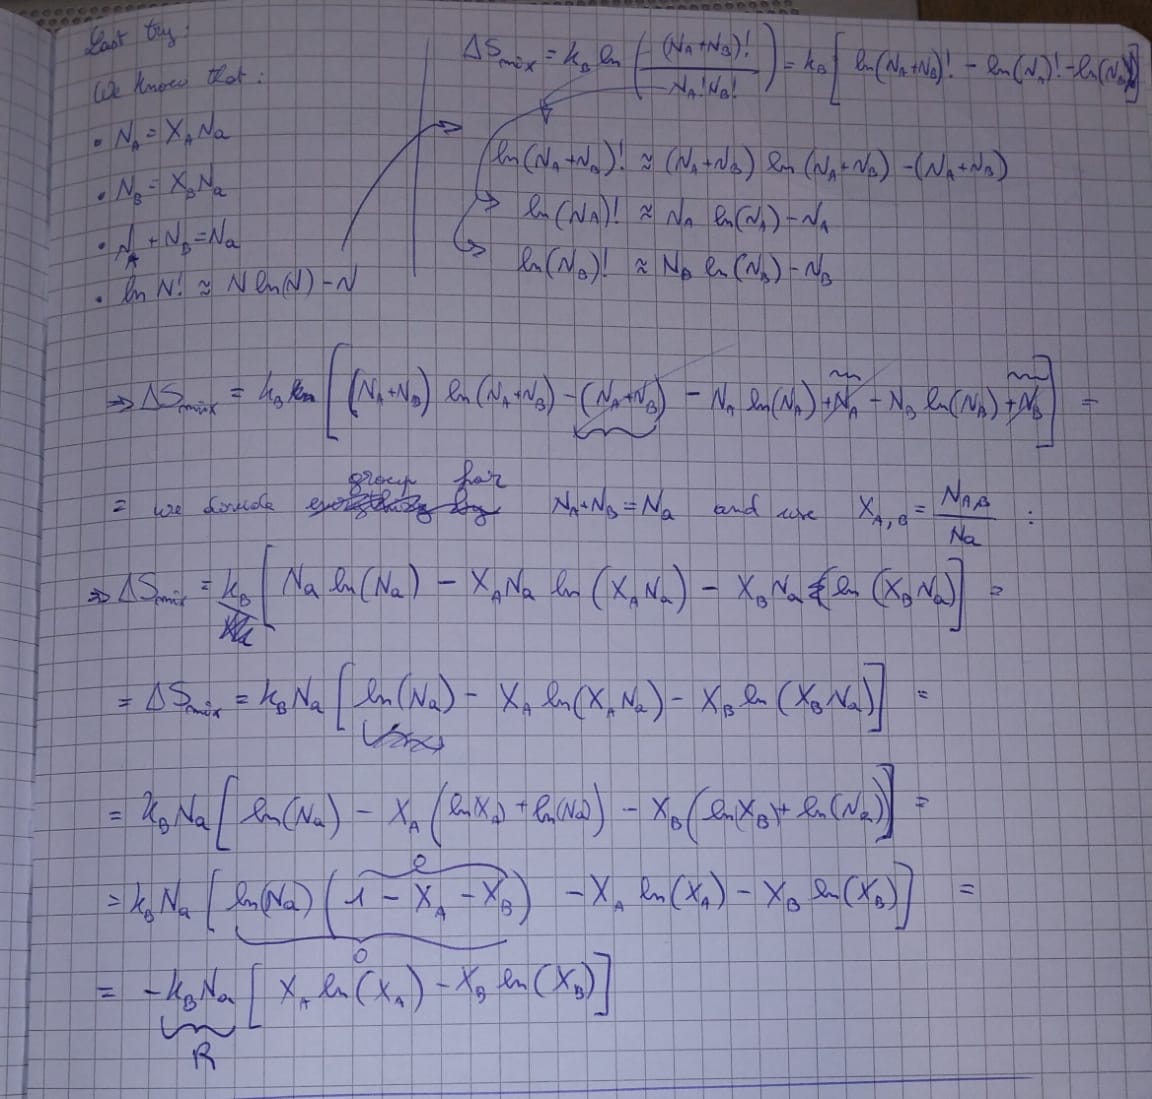 Last try:
We know that:
• N_A = X_A Na
• N_B = X_B Na
• N_A + N_B = Na
• ln N! ≈ N ln(N) - N
ΔS_mix = k_B ln ( (N_A+N_B)! / N_A! N_B! ) = k_B [ ln(N_A+N_B)! - ln(N_A)! - ln(N_B)! ]
ln(N_A+N_B)! ≈ (N_A+N_B) ln(N_A+N_B) - (N_A+N_B)
ln(N_A)! ≈ N_A ln(N_A) - N_A
ln(N_B)! ≈ N_B ln(N_B) - N_B
⇒ ΔS_mix = k_B [ (N_A+N_B) ln(N_A+N_B) - (N_A+N_B) - N_A ln(N_A) + N_A - N_B ln(N_B) + N_B ] =
group for
= we N_A+N_B = Na and use X_A,B = N_A,B / Na :
⇒ ΔS_mix = k_B [ Na ln(Na) - X_A Na ln(X_A Na) - X_B Na ln(X_B Na) ] =
= ΔS_mix = k_B Na [ ln(Na) - X_A ln(X_A Na) - X_B ln(X_B Na) ] =
= k_B Na [ ln(Na) - X_A (ln X_A + ln(Na)) - X_B (ln X_B + ln(Na)) ] =
0
= k_B Na [ ln(Na) (1 - X_A - X_B) - X_A ln(X_A) - X_B ln(X_B) ] =
0
= - k_B Na [ X_A ln(X_A) - X_B ln(X_B) ]
R